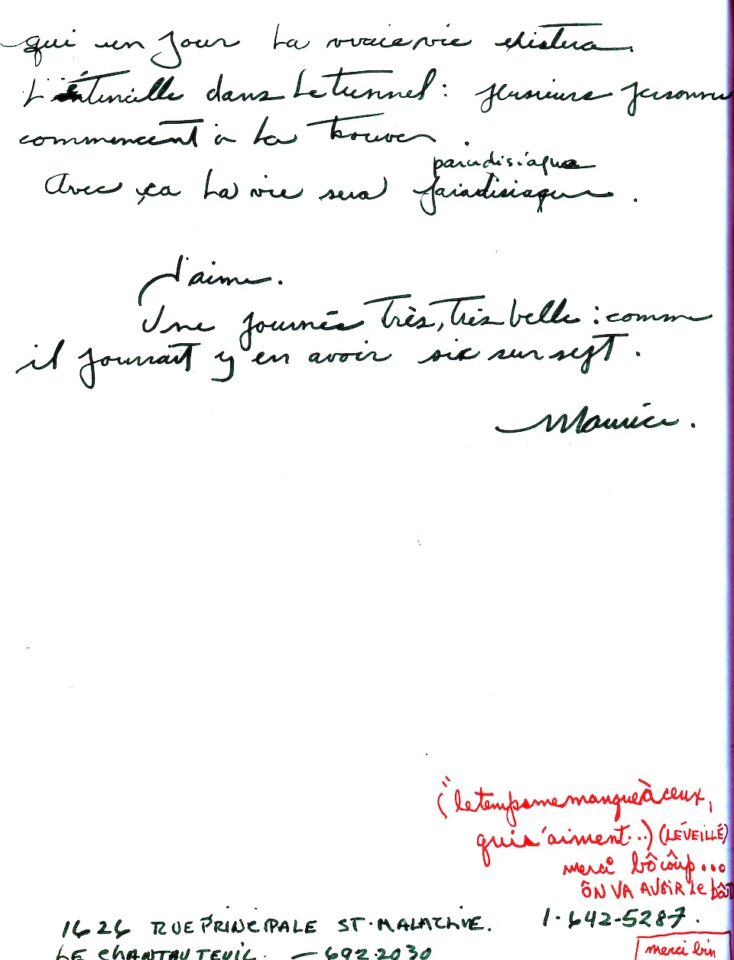 qui un jour la vraie vie existera.
L'étincelle dans le tunnel : plusieurs personnes
commencent à la trouver.
paradisiaque
Avec ça la vie sera paradisiaque.
J'aime.
Une journée très, très belle : comme
il pourrait y en avoir six sur sept.
Maurice.
("le temps me manque à ceux,
qui s'aiment...) (LÉVEILLÉ)
merci bôcôup...
ÔN VA AVOIR le bôt
1626 RUE PRINCIPALE ST-MALACHIE. 1-642-5287.
LE CHANTAUTEUIL. — 692-2030
merci bin